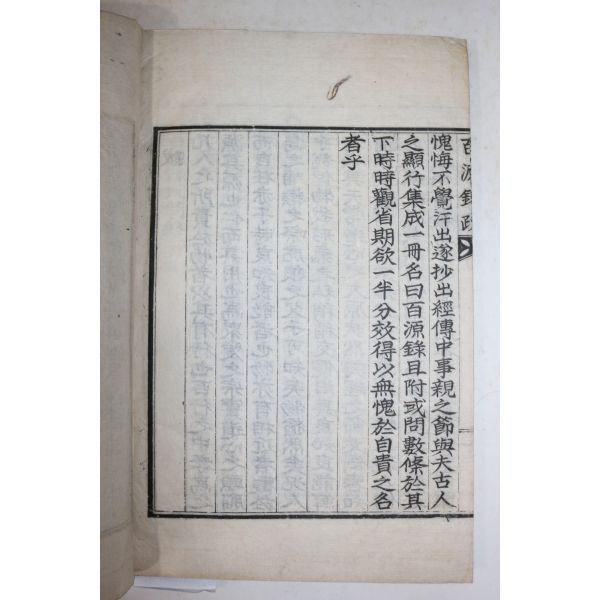 百源錄跋
愧悔不覺汗出遂抄出經傳中事親之節與夫古人
之顯行集成一冊名曰百源錄且附或問數條於其
下時時觀省期欲一半分效得以無愧於自貴之名
者乎